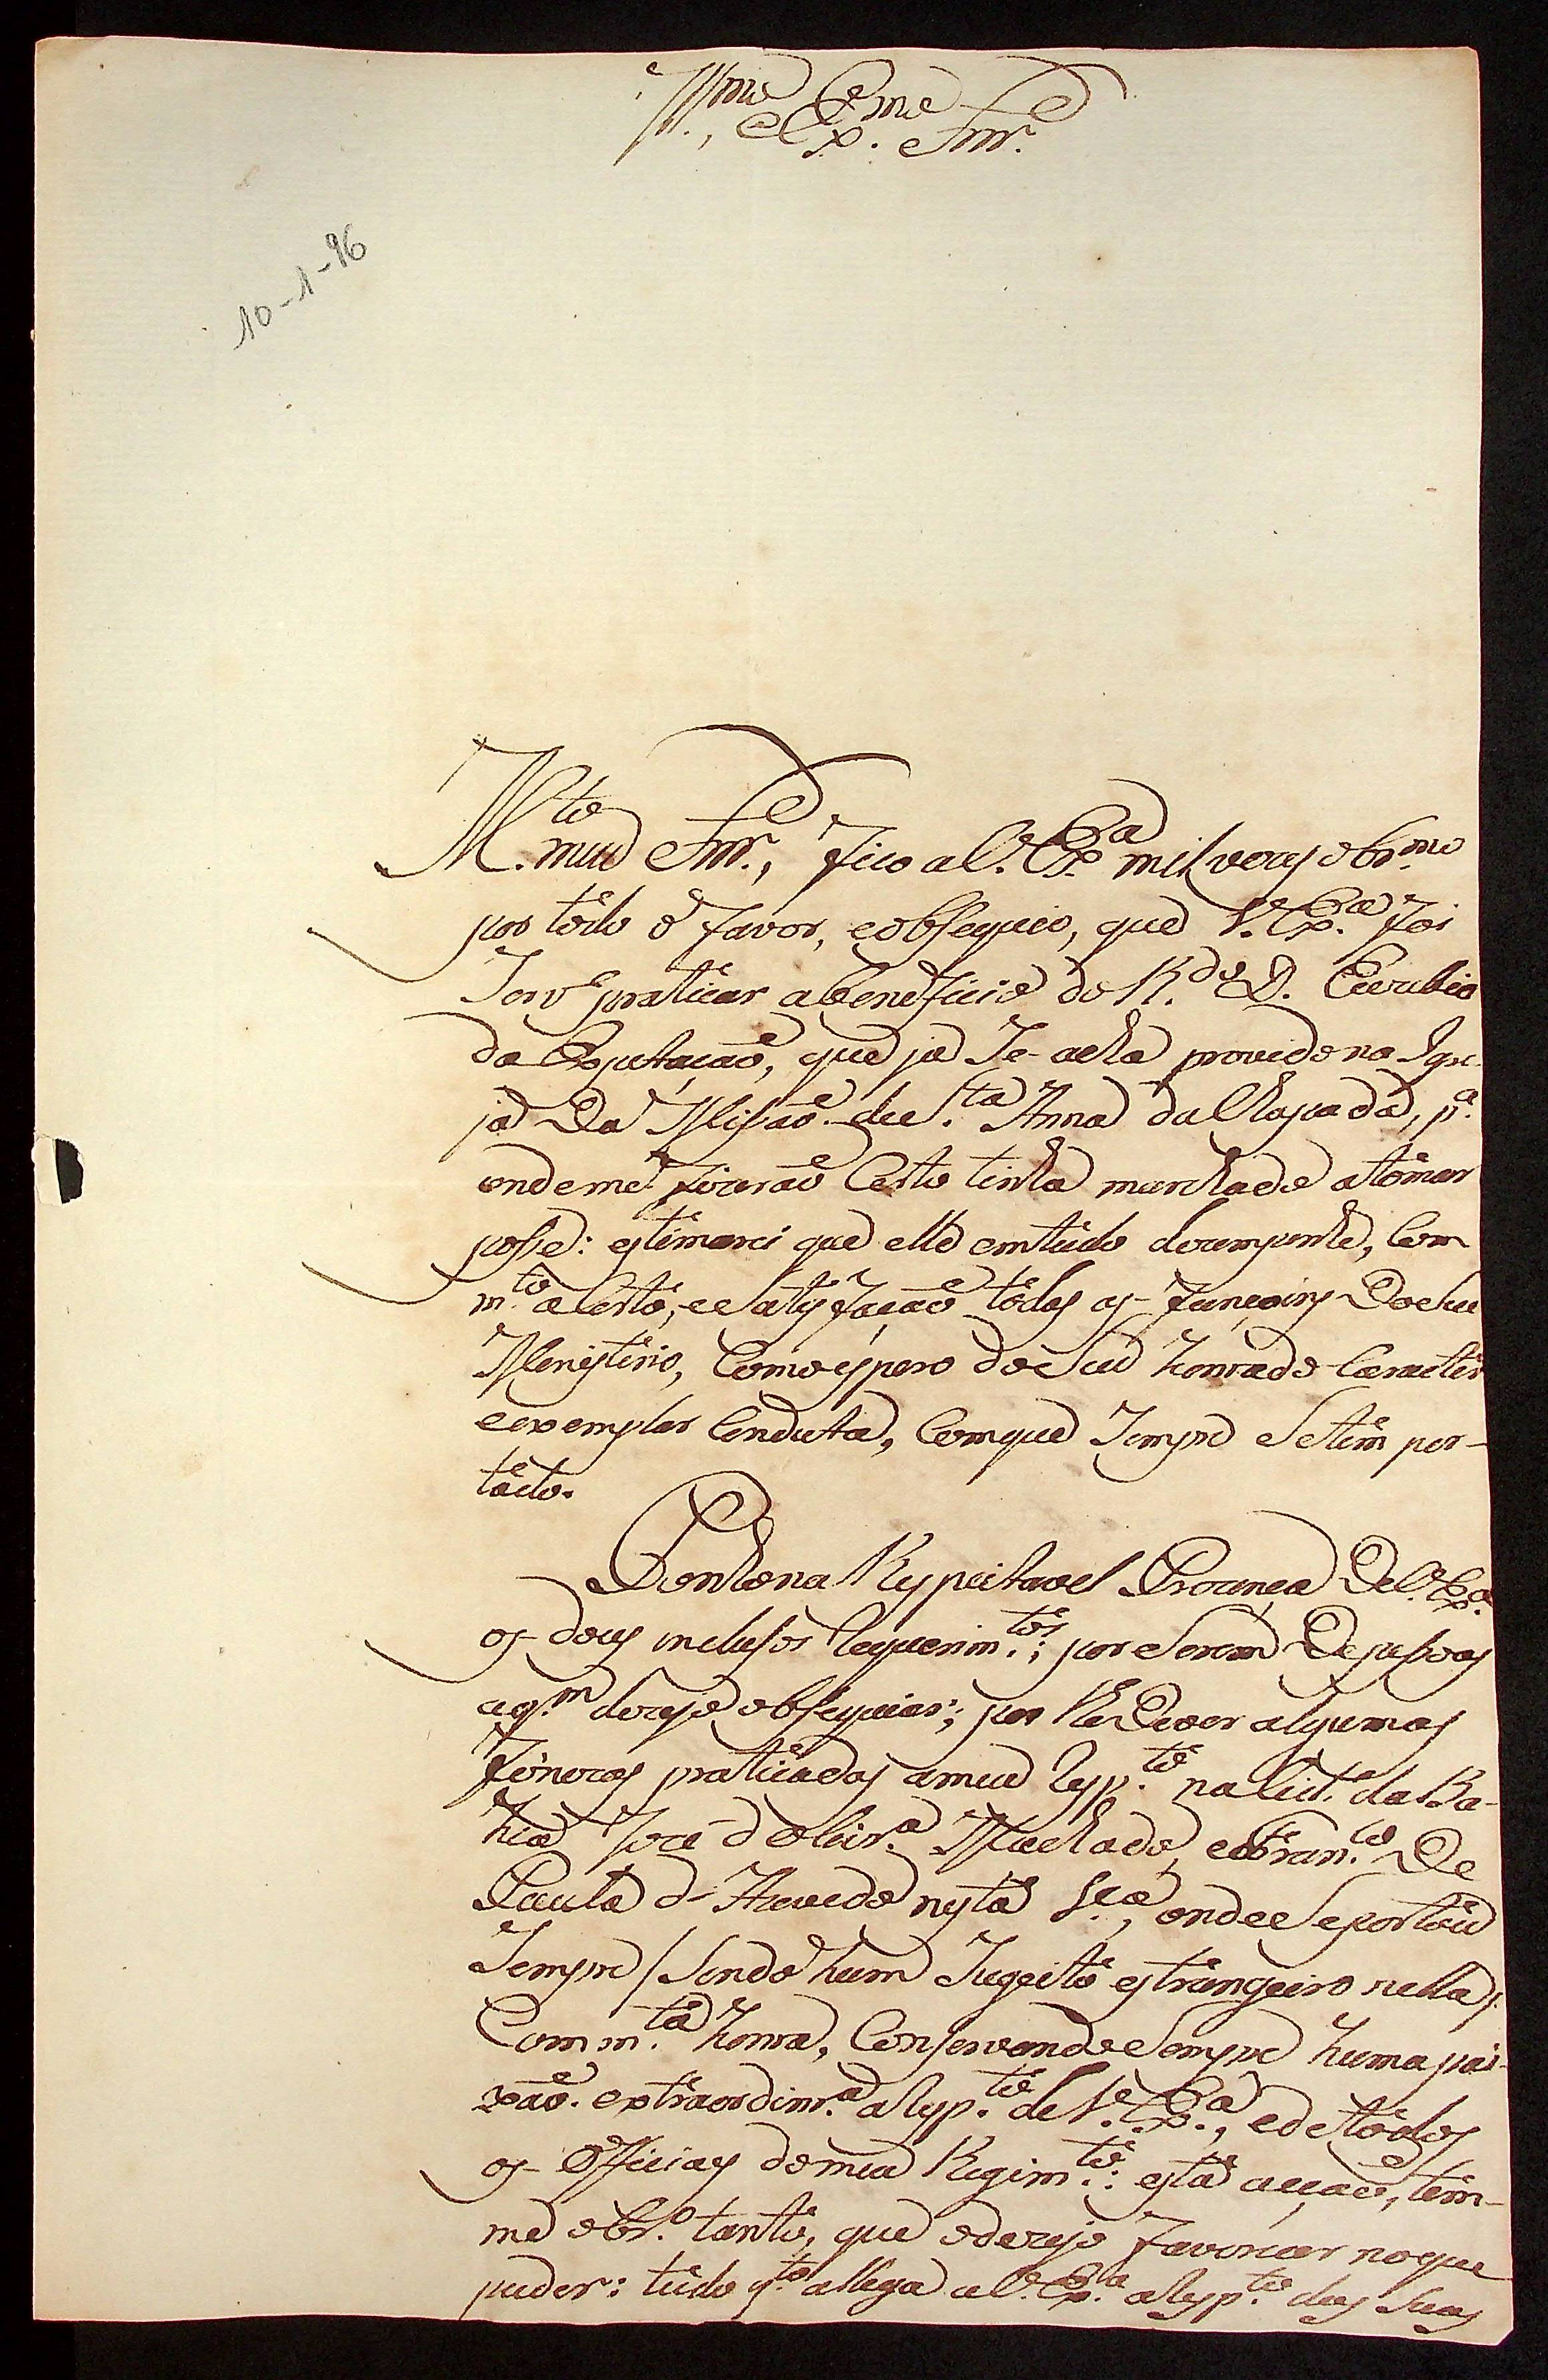 Ill.mo, e Ex.mo Snr.
10-1-96
M.to meu Snr., fico a V. Ex.a mil vezes obr.mo
por tôdo o favor, e obsequio, que V. Ex.a foi
servº praticar a beneficio do R.do D.
da Expectação, que já se-acha provido na Igre-
ja da Missão de S.ta Anna da Chapada, p.a
onde me fizerão certo tinha marchado a tomar
posse: estimarei que elle em tudo dezempenhe, com
m.to acerto, e satisfação tôdas as funçoins do seu
Menistério, como espero do seu honrado caracter
e exemplar conducta, com que sempre se tem por-
tado.
Ponho na Respeitavel Prezença de V. Ex.a
os dous inclusos requerim.tos; por serem de pessoas
a q.m dezejo obsequiar; por lhe dever algumas
finezas praticadas a meu resp.to na Cid.e da Ba-
hia Jozé d'Oliv.a Machado, e a Fran.co de
Paula d'Azevedo nesta V.a, onde se portou
sempre / sendo hum sugeito estrangeiro nella /
com m.ta honra, conservando sempre huma pai-
xão extraordinr.a a resp.to de V. Ex.a, e de tôdos
os Officiaes do meu Regim.to: esta acção, tem-
me obr.o tanto, que o dezejo favorecer no que
puder: tudo q.to allega a V. Ex.a a resp.to das suas